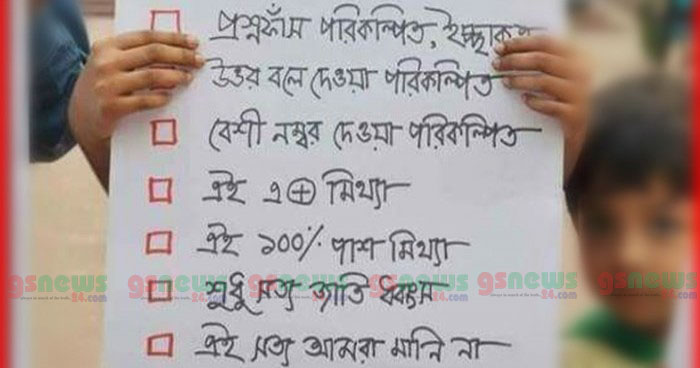 প্রশ্নফাঁস পরিকল্পিত, ইচ্ছাকৃত
উত্তর বলে দেওয়া পরিকল্পিত
বেশী নম্বর দেওয়া পরিকল্পিত
এই এ⊕ মিথ্যা
এই ১০০% পাশ মিথ্যা
শুধু সত্য জাতি ধ্বংস
এই সত্য আমরা মানি না
gsnews24.com gsnews24.com gsnews24.com gsnews24.com